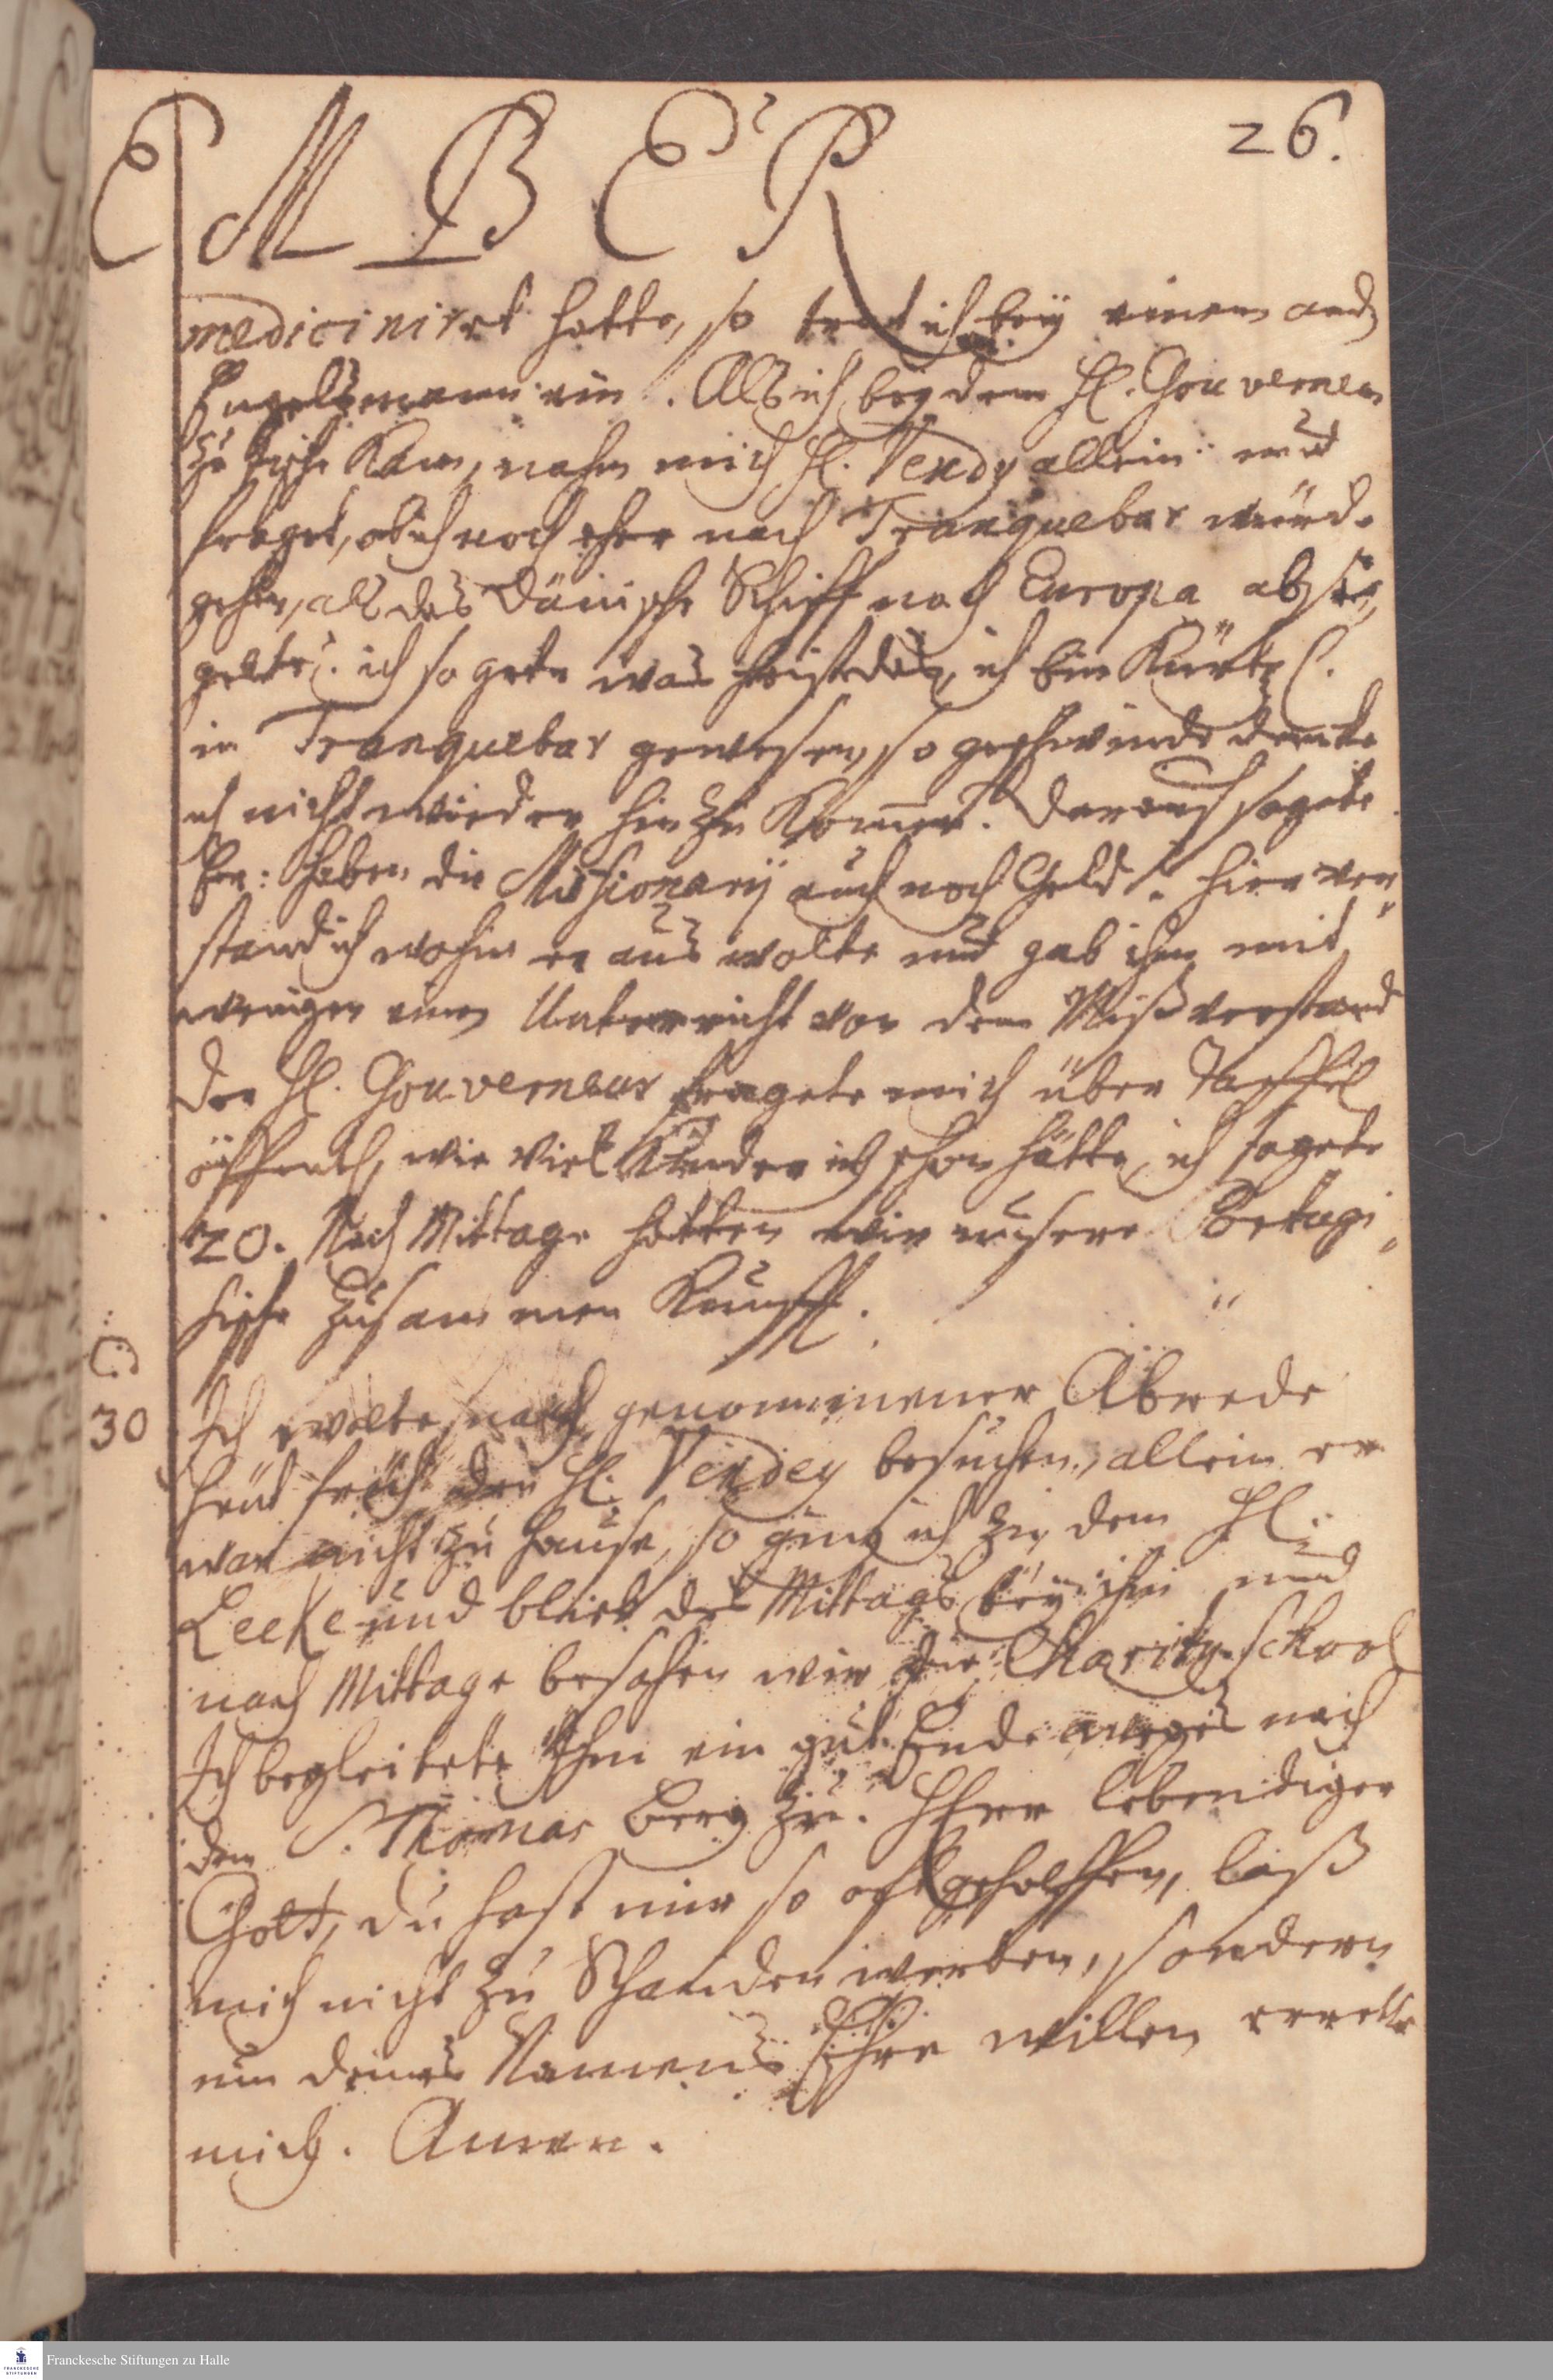 EMBER
26.
medicinirt hatte, so trat ich bey einem and
Engelsmann ein. Als ich bey dem H. Gouverneur
zu tische kam, nahm mich H. Vendy allein und
fraget, ob ich noch eher nach Tranquebar würde
gehen, als das Dänische Schiff nach Europa absie„
gelte? ich sagete was heist das, ich bin kurtz
in Tranquebar gewesen, so geschwinde dencke
ich nicht wieder hin zu kommen. Darauf sagete
Er: haben die Missionarij auch noch Geld? hier ver„
stand ich wohin er aus wolte und gab ihm mit
wenigen einen Unterricht von dem Mißverstand
der H. Gouverneur fragete mich über Taffel
öffentl, wie viel Kinder ich schon hätte, ich sagete
20. Nach Mittage hatten wir unsere Portugi„
sische Zusammen Kunfft.
☾
30
Ich wolte, nach genommener Abrede
heut früh den H. Vendey besuchen, allein er
war nicht zu hause, so ging ich zu dem H.
Leeke und blieb des Mittags bey ihm und
nach Mittage besahen wir die Charity-School
Ich begleitete Ihm ein gut Ende weges nach
dem S. Thomas Berg zu. HErr lebendiger
Gott, du hast mir so offt geholffen, laß
mich nicht zu Schanden werden, sondern
um deines Namens Ehre willen errette
mich. Amen.
Franckesche Stiftungen zu Halle